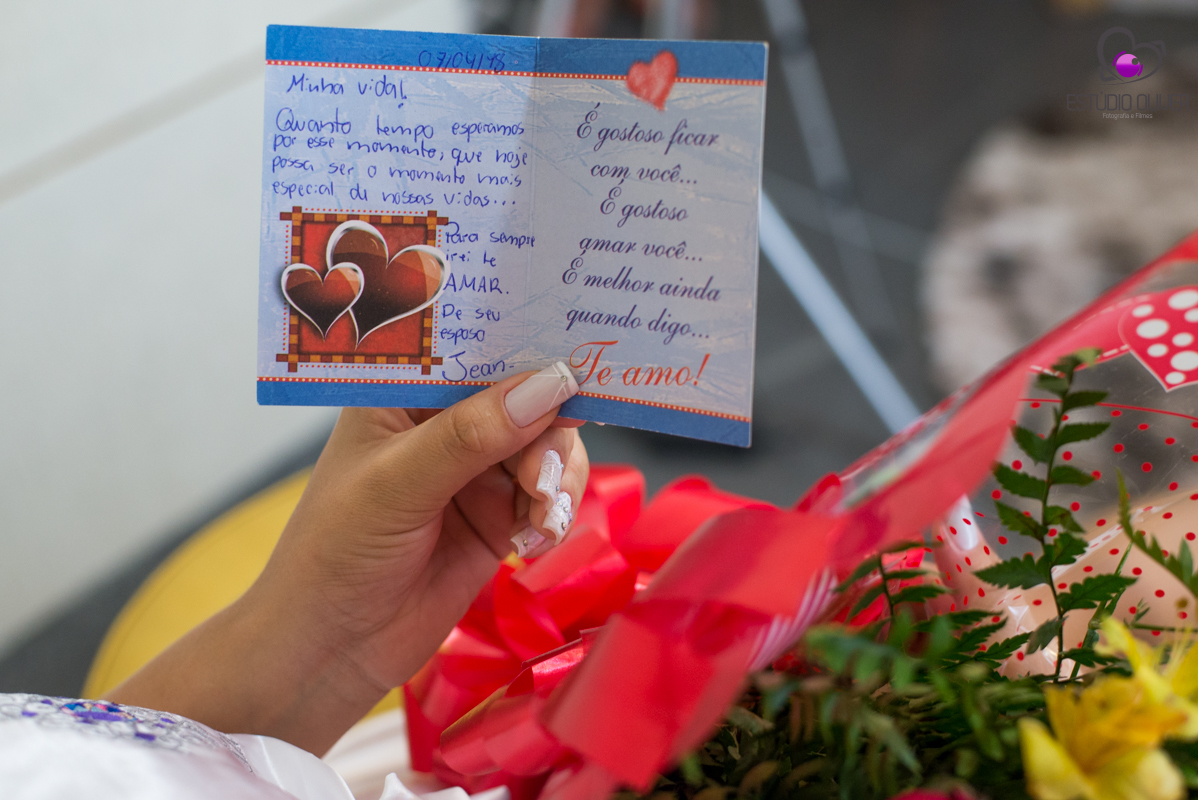 07/04/18
Minha vida!
Quanto tempo esperamos
por esse momento, que hoje
possa ser o momento mais
especial de nossas vidas...
Para sempre
irei te
AMAR.
De seu
esposo
Jean-
É gostoso ficar
com você...
É gostoso
amar você...
É melhor ainda
quando digo...
Te amo!
ESTÚDIO
Fotografia e Filmes